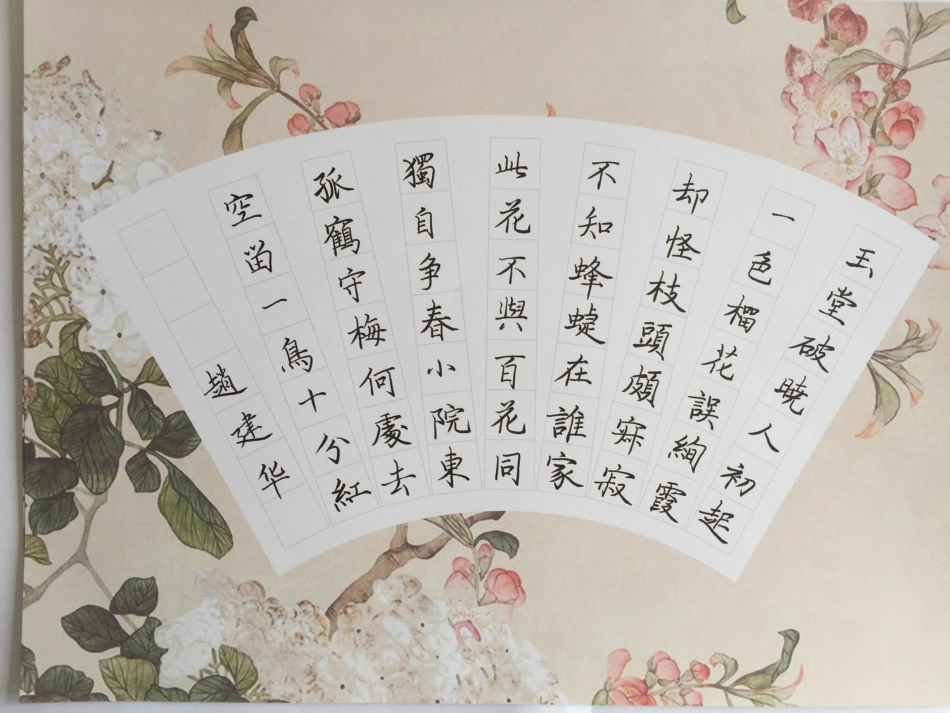 玉堂破曉人初起
一色榴花誤絢霞
却怪枝頭頗寂寂
不知蜂蜨在誰家
此花不與百花同
獨自争春小院東
孤鶴守梅何處去
空留一鳥十分紅
趙建华